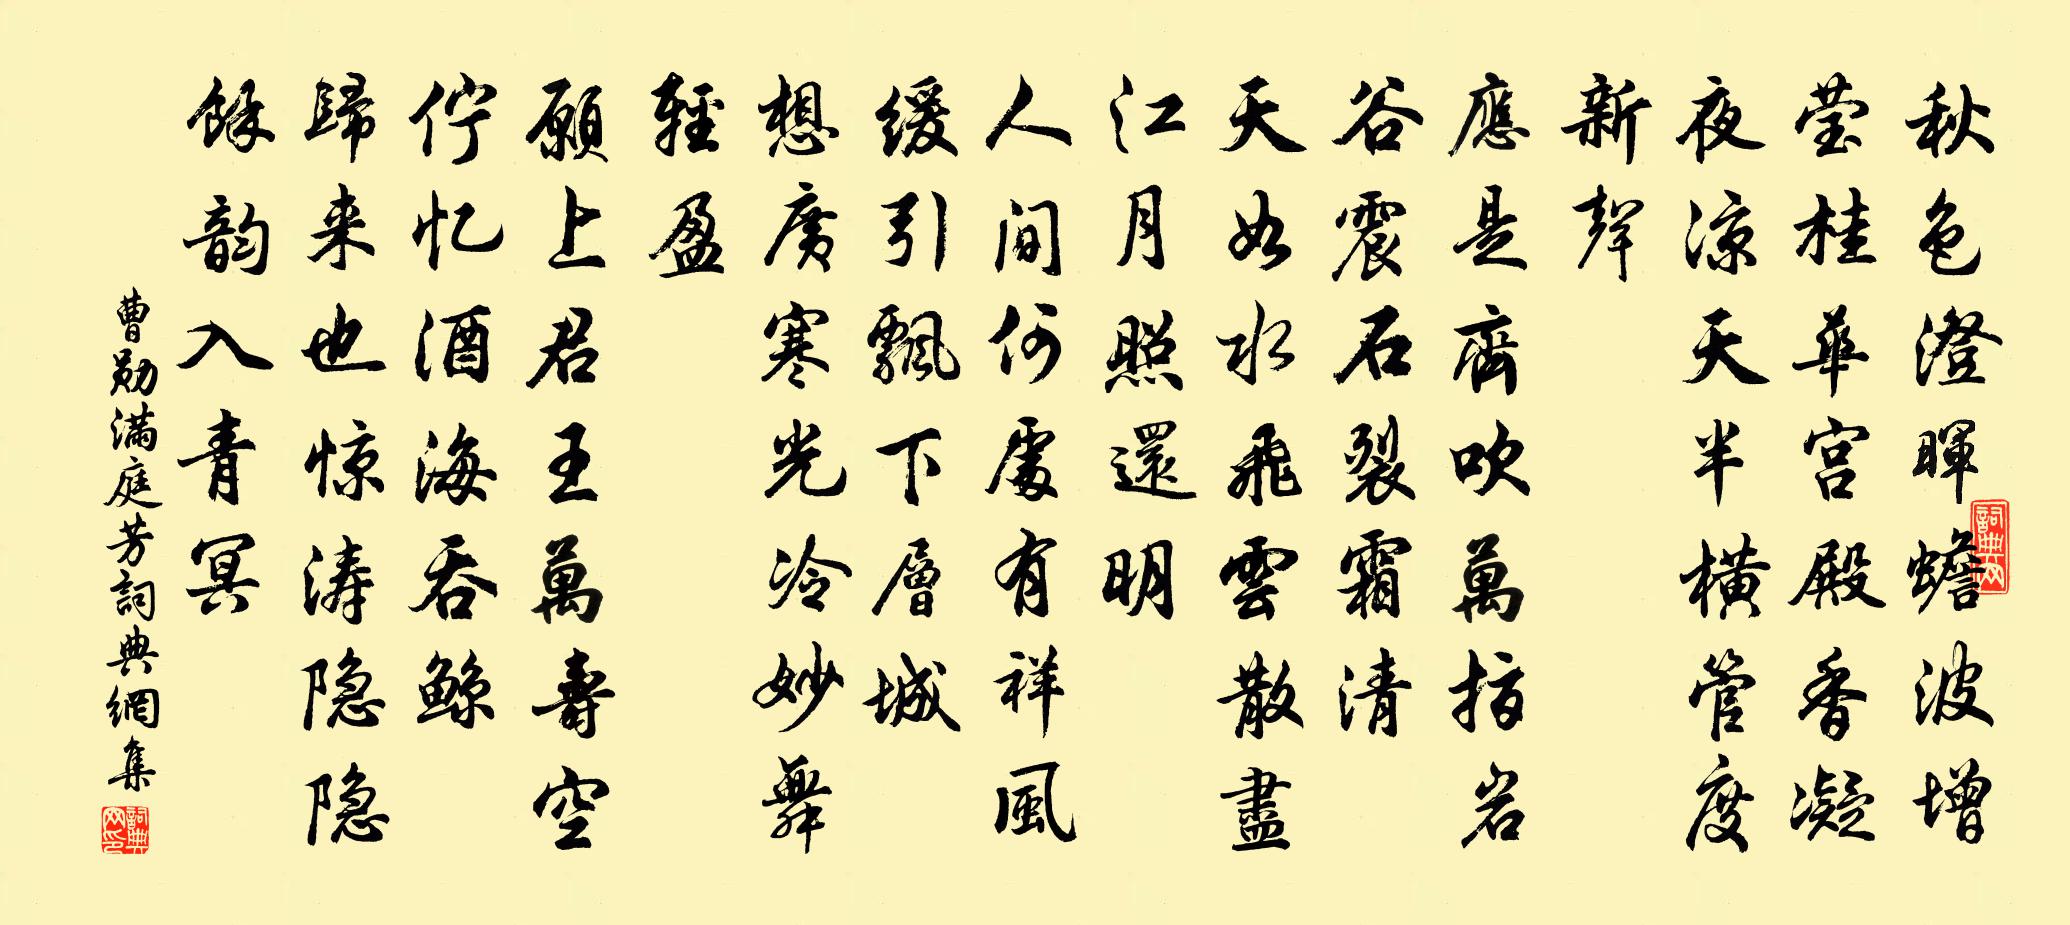 秋色澄暉蟾波增
莹桂華宮殿香凝
夜凉天半橫管度
新聲
應是齊吹萬指岩
谷震石裂霜清
天如水飛雲散盡
江月照還明
人间何處有祥風
缓引飄下層城
想廣寒光冷妙舞
輕盈
願上君王萬壽空
佇忆酒海吞鲸
歸来也惊涛隐隐
餘韵入青冥
曹勛满庭芳詞典網集
詞典网
詞典网印